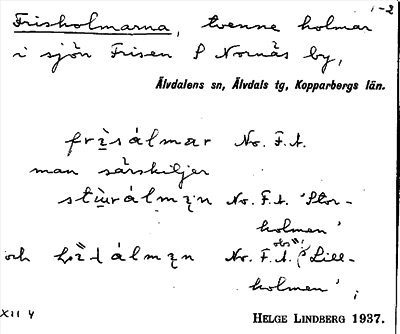 1-2
Frisholmarna, tvenne holmar
i sjön Frisen S Nornäs by,
Älvdalens sn, Älvdals tg, Kopparbergs län.
frìsálmar No. F.A.
man särskiljer
No. F.A. 'Stor-
holmen'
och No. F.A. obs "!" 'Lill-
holmen';
XII 4
HELGE LINDBERG 1937.